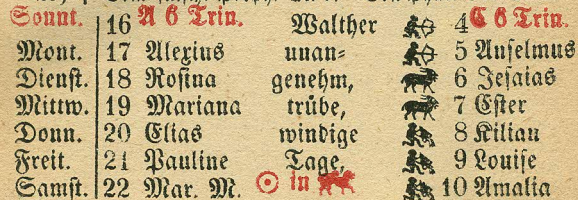 Sonnt. 16 A 6 Trin. Walther 4 C 6 Trin.
Mont. 17 Alexius unan= 5 Anselmus
Dienst. 18 Rosina genehm, 6 Jesaias
Mittw. 19 Mariana trübe, 7 Ester
Donn. 20 Elias windige 8 Kilian
Freit. 21 Pauline Tage, 9 Louise
Samst. 22 Mar. M. ☉ in 10 Amalia